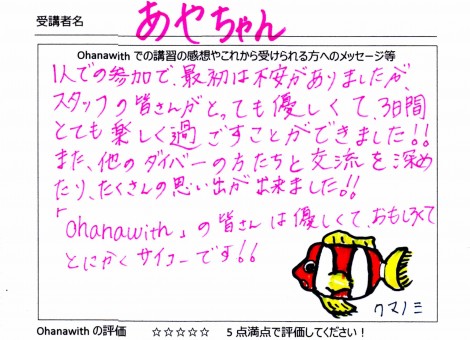 受講者名 あやちゃん
Ohanawith での講習の感想やこれから受けられる方へのメッセージ等
1人での参加で、最初は不安がありましたが
スタッフの皆さんがとっても優しくて、3日間
とても楽しく過ごすことができました!!
また、他のダイバーの方たちと交流を深め
たり、たくさんの思い出が出来ました!!
「Ohanawith」の皆さんは優しくて、おもしろくて
とにかくサイコーです!!
クマノミ
Ohanawith の評価 ☆☆☆☆☆ 5点満点で評価してください!